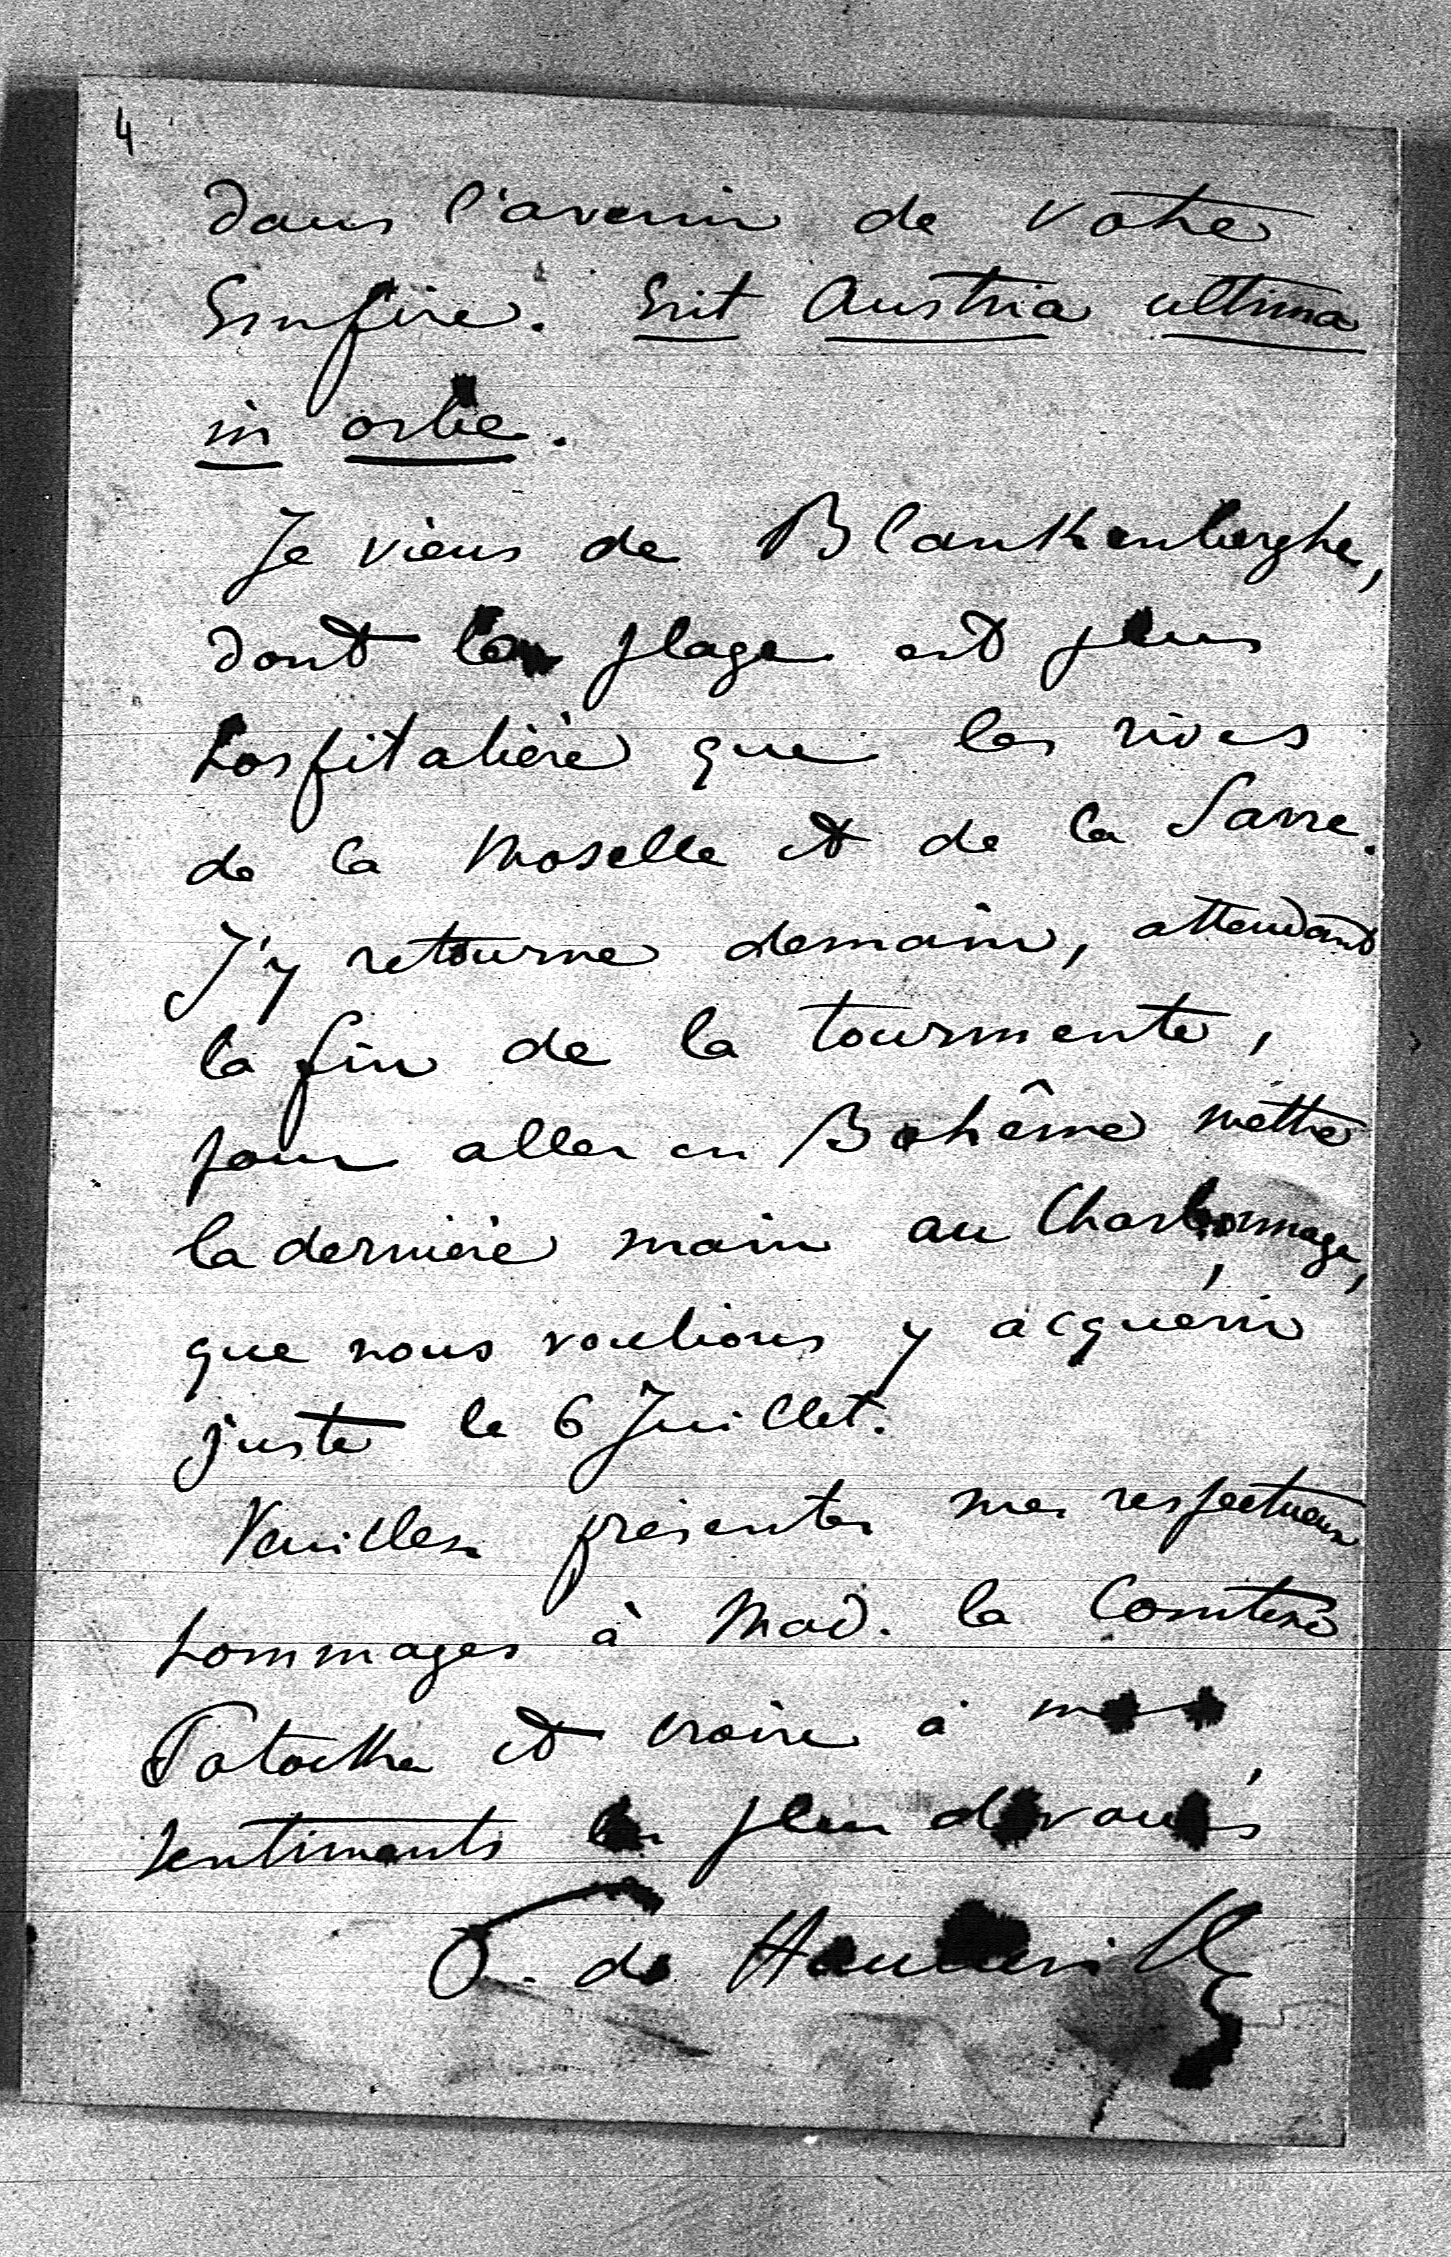 4
dans l'avenir de votre
Empire. Erit Austria ultima
in orbe.
Je viens de Blankenberghe,
dont la plage est plus
hospitalière que les rives
de la Moselle et de la Sarre.
J'y retourne demain, attendant
la fin de la tourmente,
pour aller en Bohême mettre
la dernière main au Charbonnage,
que nous voulions y acquérir
juste le 6 Juillet.
Veuillez présenter mes respectueux
hommages à Mad. la Comtesse
Potocka et croire à mes
sentiments les plus dévoués
de